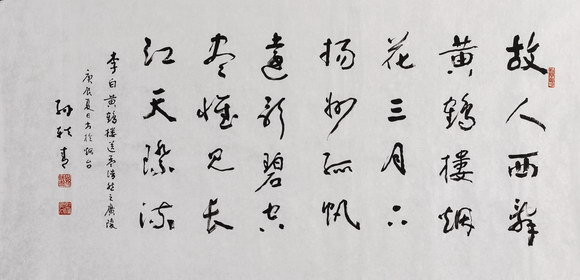 故人西辭
黄鶴樓烟
花三月下
揚州孤帆
遠影碧空
盡惟見長
江天際流
李白黄鶴樓送孟浩然之廣陵
庚辰夏日书於烟台